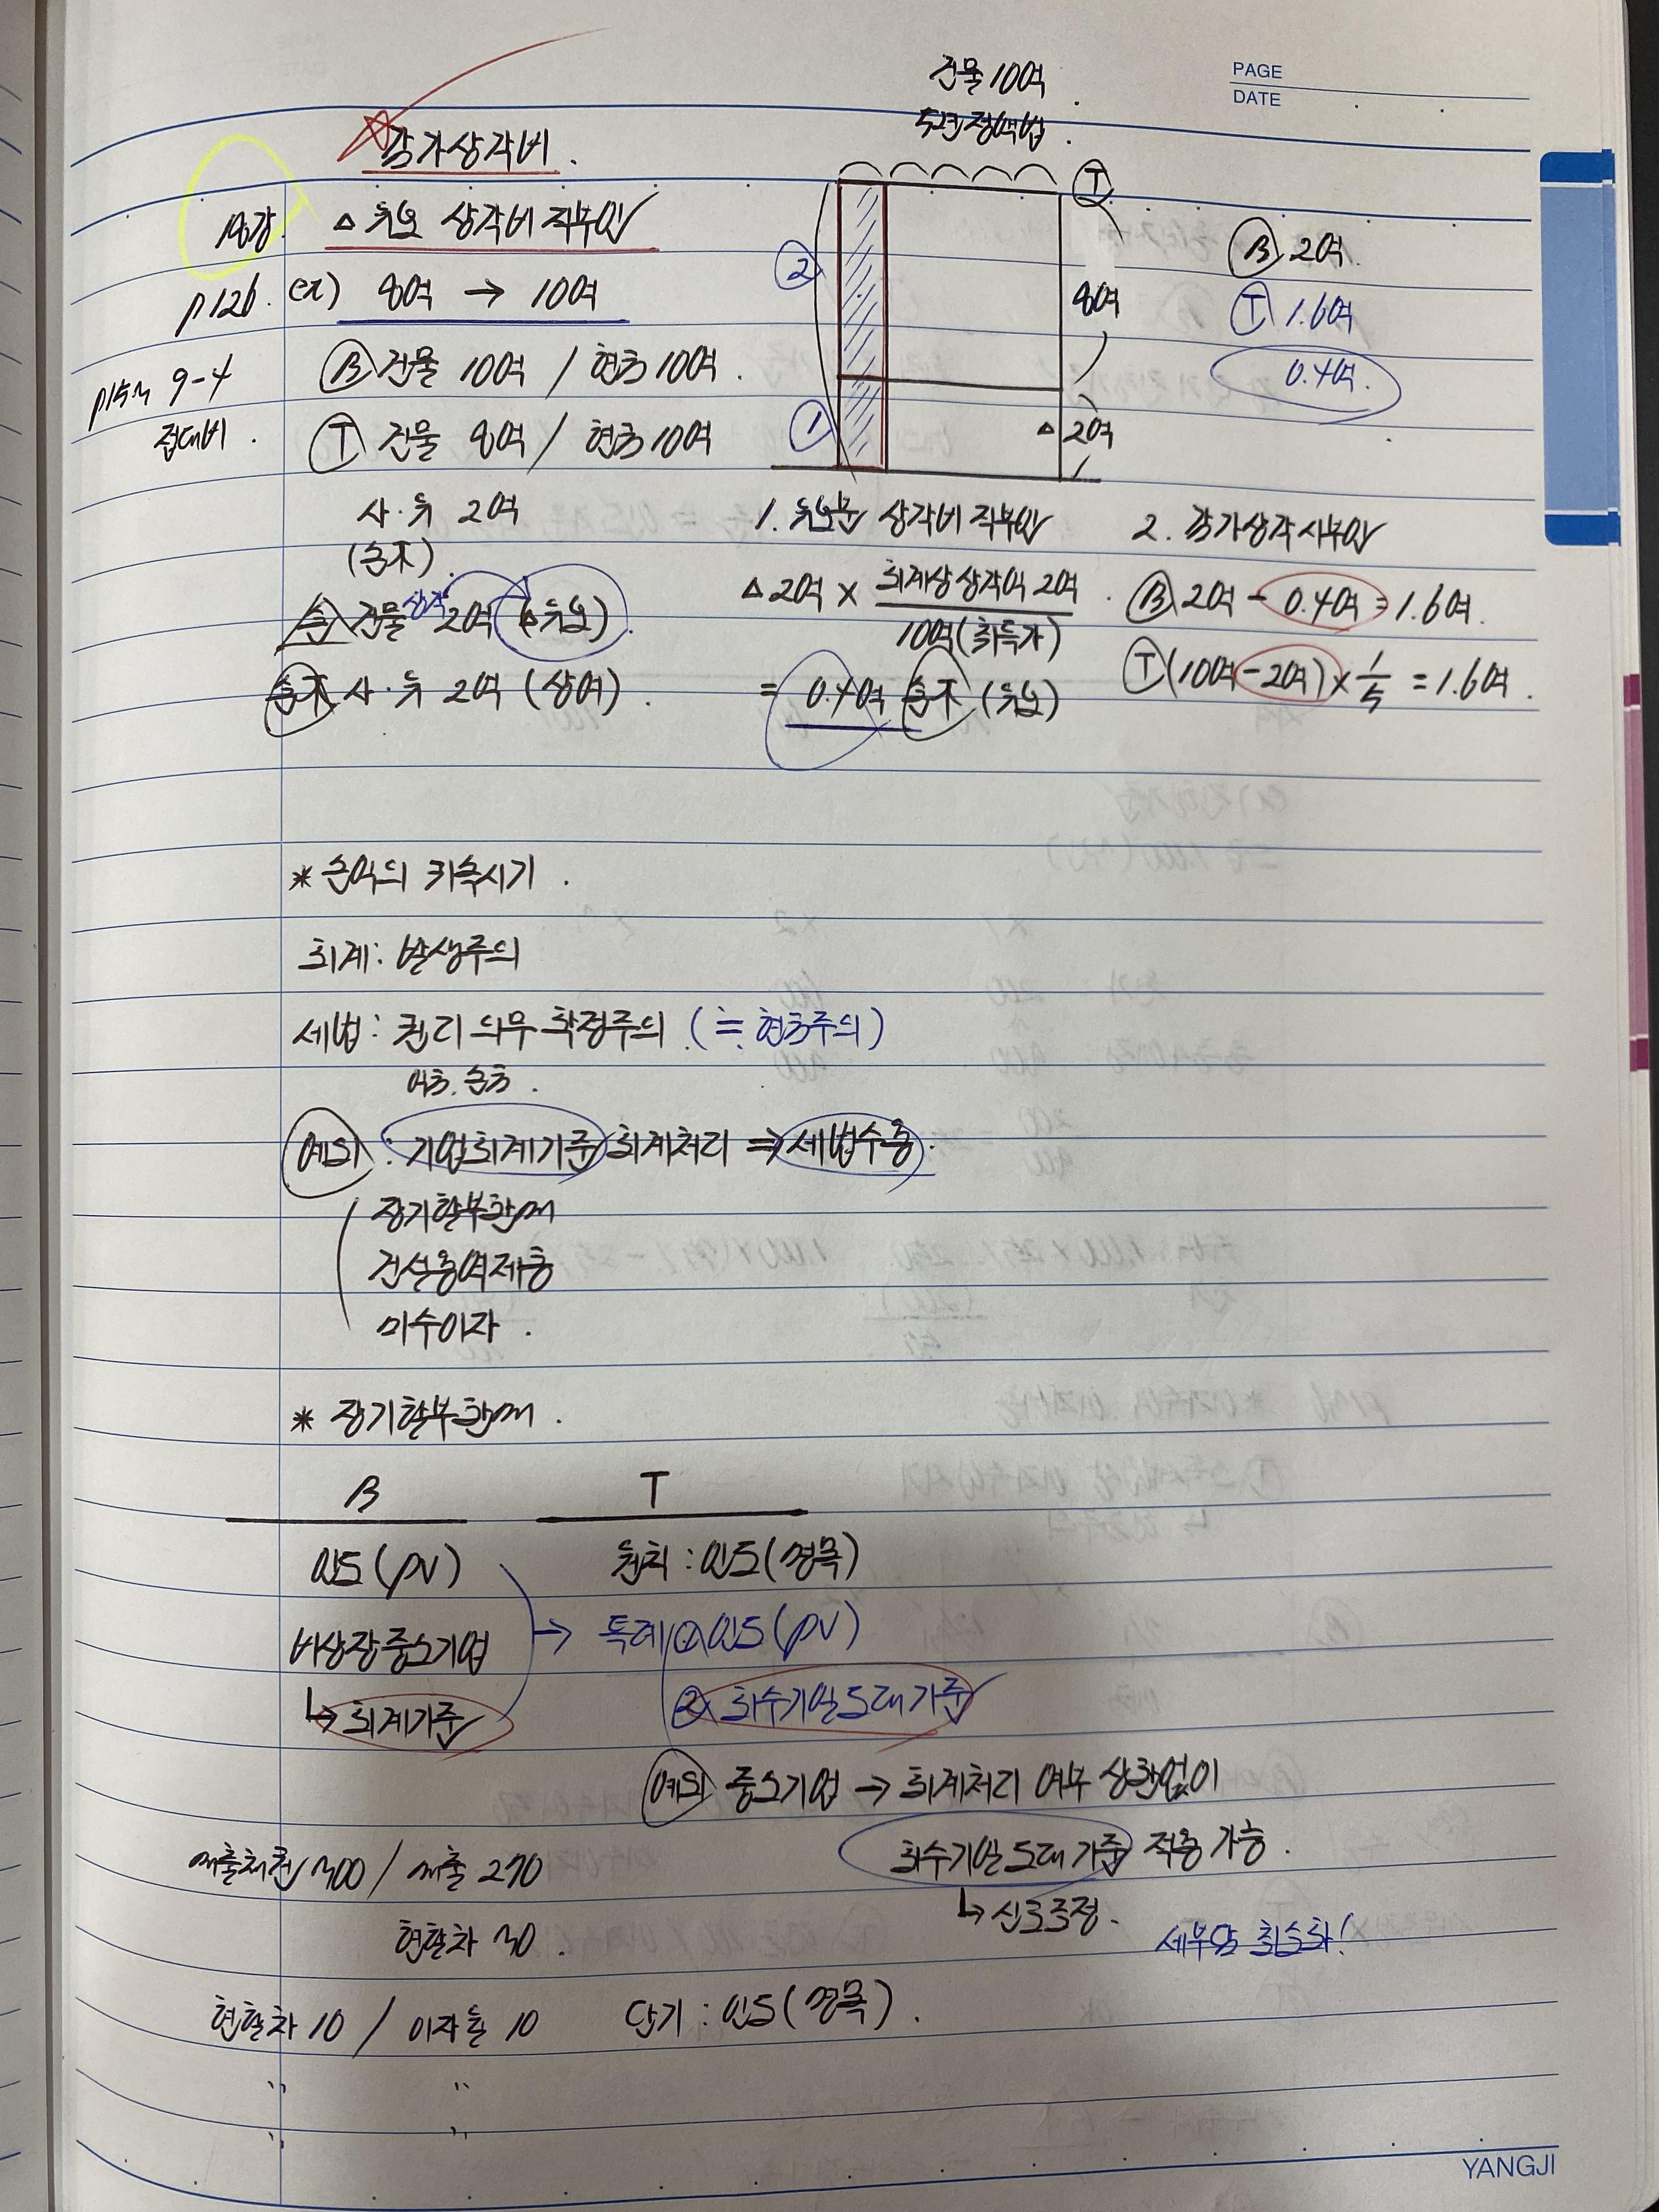 PAGE
DATE
건물 10억
5년 정액법
감가상각비
18강
△ 유보 상각비 직부인
p126. ex) 8억 → 10억
p153 9-4
접대비
Ⓑ 건물 10억 / 현금 10억
Ⓣ 건물 8억 / 현금 10억
사·유 2억
(손不)
손 건물 상각 2억 (△유보)
손不 사·유 2억 (상여)
Ⓣ
②
①
8억
△ 2억
Ⓑ 2억
Ⓣ 1.6억
0.4억
1. 유보분 상각비 직부인
△ 2억 × 회계상 상각액 2억
10억 (취득가)
= 0.4억 손不 (유보)
2. 감가상각 시부인
Ⓑ 2억 - 0.4억 = 1.6억
Ⓣ (10억 - 2억) × 1/5 = 1.6억
* 손익의 귀속시기
회계: 발생주의
세법: 권리의무확정주의 (≒ 현금주의)
예외: 기업회계기준 회계처리 ⇒ 세법수용
장기할부판매
건설용역제공
미수이자
* 장기할부판매
B T
인도(pv) 원칙: 인도(명목)
비상장중소기업 → 특례 ① 인도(pv)
↳ 회계기준 ② 회수기일도래기준
예외 중소기업 → 회계처리 여부 상관없이
회수기일도래기준 적용 가능
↳ 신고조정
세부담 최소화!
매출채권 300 / 매출 270
현할차 30
현할차 10 / 이자수익 10
단기: 인도(명목)
〃 〃
〃 〃
YANGJI